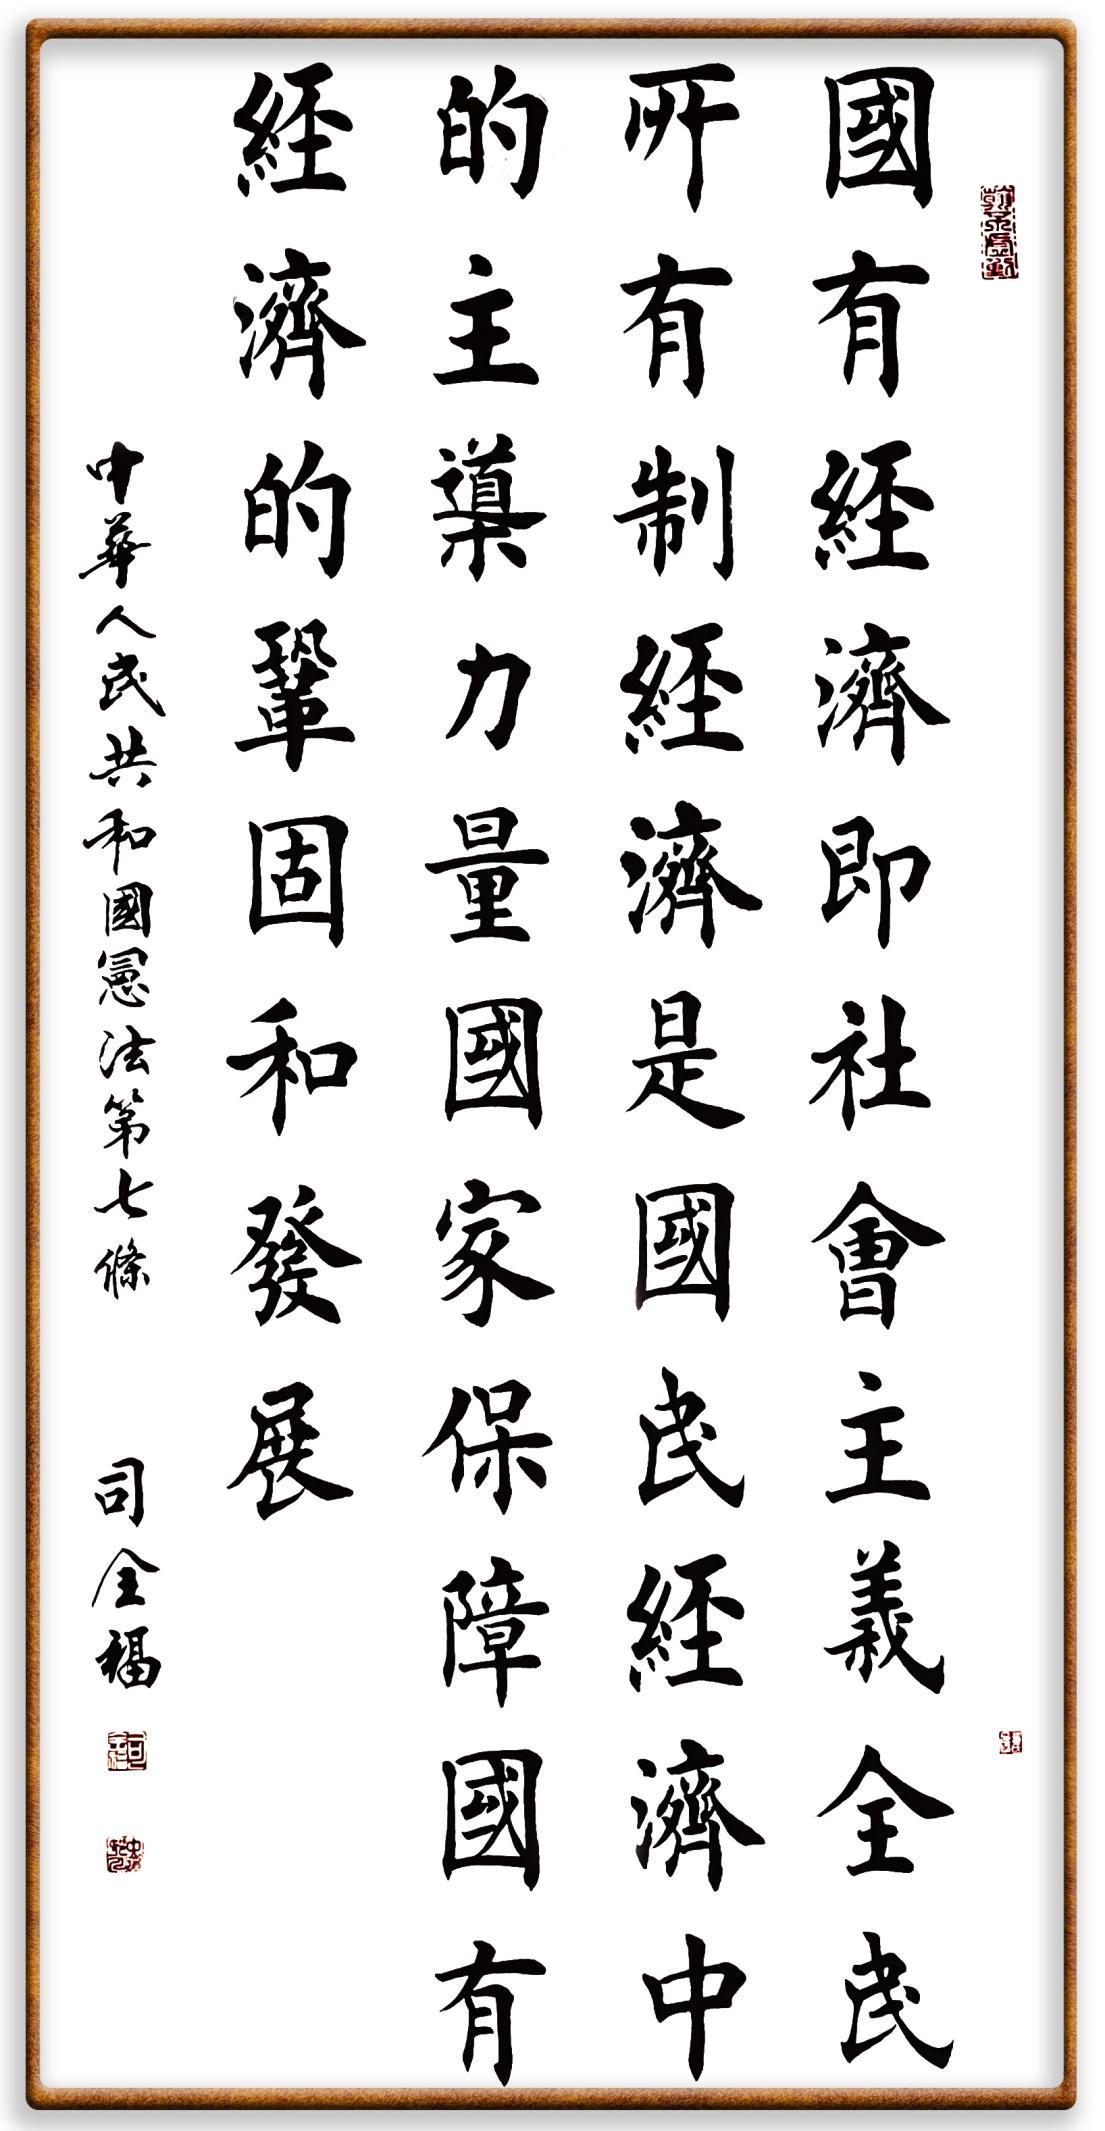 國有經濟即社會主義全民
所有制經濟是國民經濟中
的主導力量國家保障國有
經濟的鞏固和發展
中華人民共和國憲法第七條
司全福